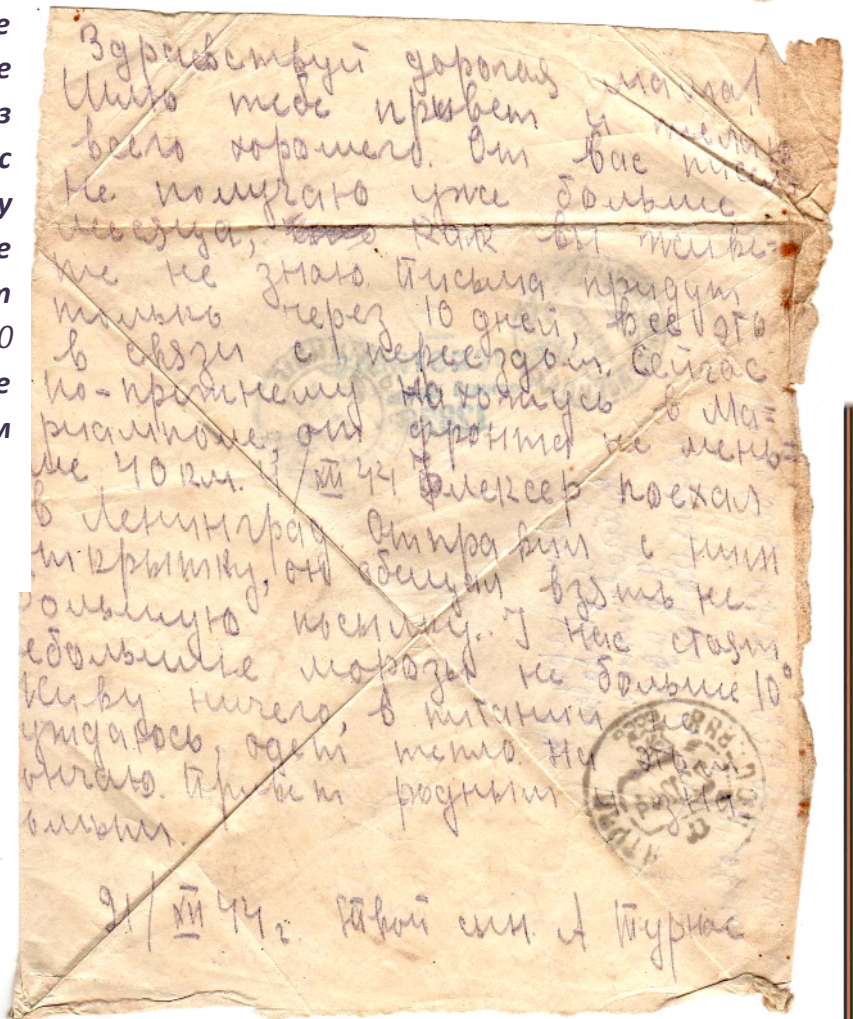 е
е
з
с
у
е
т
0
е
м
Здравствуй дорогая мама!
Шлю тебе привет и желаю
всего хорошего. От вас писем
не получаю уже больше
месяца, как вы живе-
те не знаю. Письма придут
только через 10 дней, все это
в связи с переездом. Сейчас
по-прежнему нахожусь в Ма-
риамполе, от фронта не мень-
ше 40 км. XII 44 поехал
в Ленинград отправил с ним
открытку, он обещал взять не-
большую посылку. У нас стоят
небольшие морозы не больше 10°
Живу ничего, в питании не
нуждаюсь, одет тепло. На этом
кончаю. Привет родным и зна-
комым.
21/XII 44 г. Твой сын. А Турнас